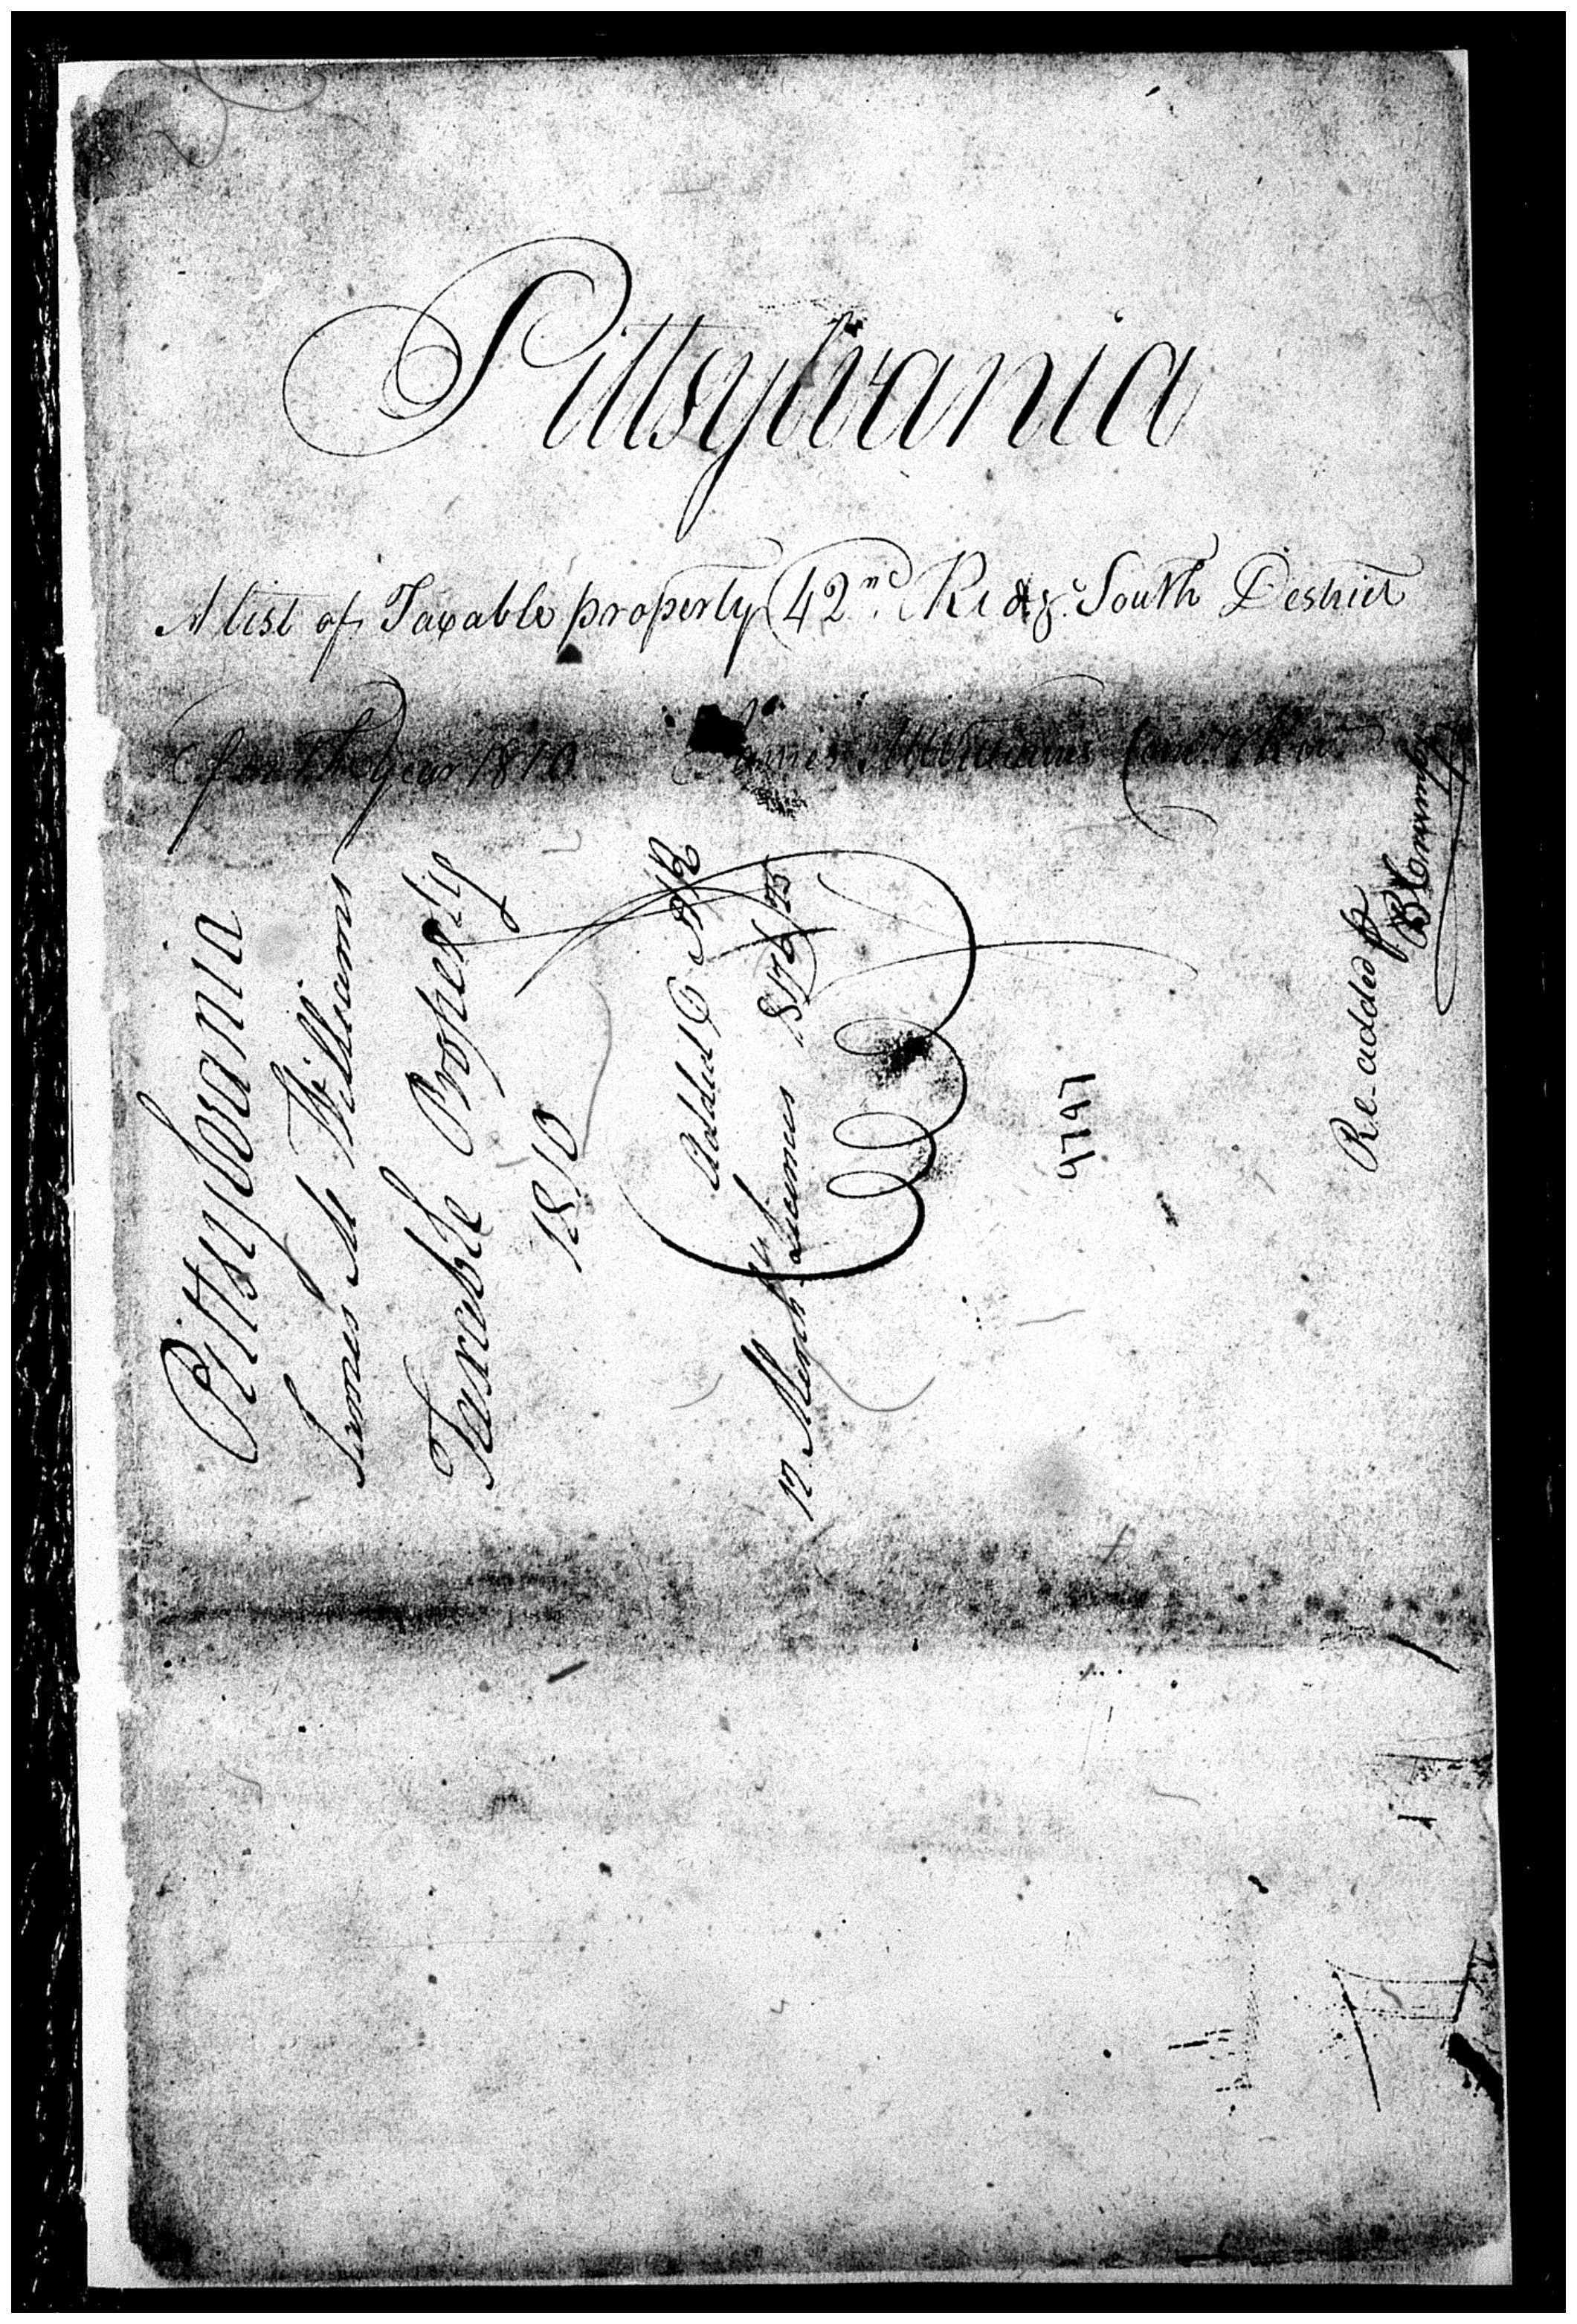 Pittsylvania
A list of Taxable property 42nd. South District
for the year 1810 James M Williams Com.
Pittsylvania
James M Williams
Taxable Property
1810
Added
17 Merch
9797
Re-added
B Crump